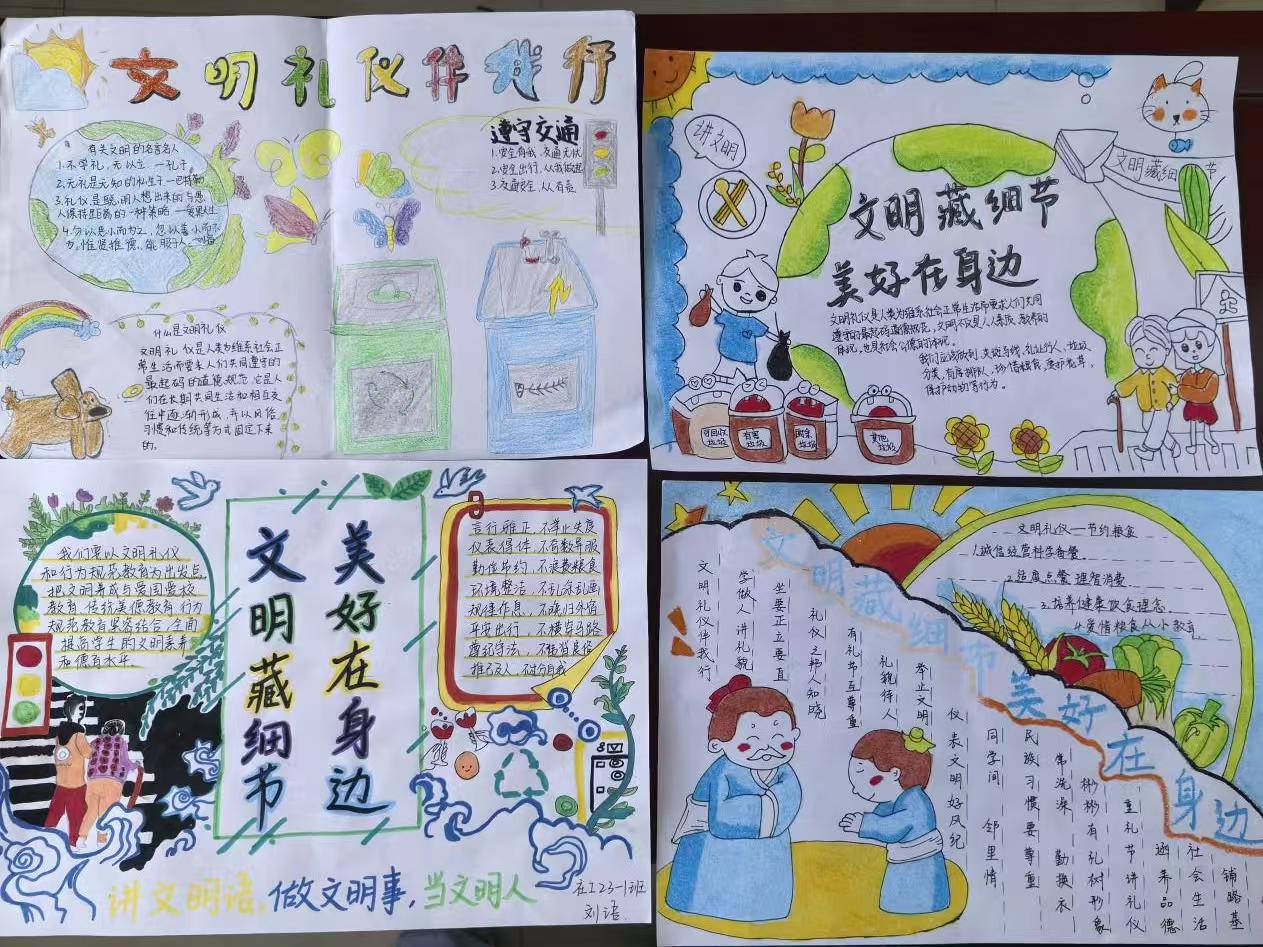 文明礼仪伴我行
有关文明的名言名人
1.不学礼，无以立 —孔子
2.无礼是无知的私生子—巴特勒
3.礼仪是聪明人想出来的与愚
人保持距离的一种策略—爱默生
4.勿以恶小而为之，勿以善小而不
为。惟贤惟德，能服于人。—刘备
遵守交通
1.安全有我，交通无忧
2.安全出行，从我做起
3.交通安全，人人有责
什么是文明礼仪
文明礼仪是人类为维系社会正
常生活而要求人们共同遵守的
最起码的道德规范，它是人
们在长期共同生活和相互交
往中逐渐形成，并以风俗、
习惯和传统等方式固定下来
的。
讲文明
文明藏细节
文明藏细节
美好在身边
文明礼仪是人类为维系社会正常生活而要求人们共同
遵守的最起码道德规范，文明不仅是个人素质、教养的
体现，也是社会公德的体现。
我们应该做到
礼让行人，垃圾
分类，有序排队，珍惜粮食，爱护花草，
保护动物等行为。
可回收
垃圾
有害
垃圾
厨余
垃圾
其他
垃圾
我们要以文明礼仪
和行为规范教育为出发点，
把文明养成与爱国爱校
教育、传统美德教育、行为
规范教育紧密结合，全面
提高学生的文明素养
和德育水平。
美好在身边
文明藏细节
言行雅正，不举止失度
仪表得体，不奇装异服
勤俭节约，不浪费粮食
环境整洁，不乱涂乱画
规律作息，不晚归外宿
平安出行，不横穿马路
遵纪守法，
推己及人，
讲文明语，做文明事，当文明人
社工23-1班
刘语
文明藏细节
美好在身边
文明礼仪—节约粮食
1.诚信经营科学备餐
2.适度点餐 理智消费
3.培养健康饮食理念
4.爱惜粮食从小教育
文明礼仪伴我行
学做人 讲礼貌
坐要正立要直
礼仪之邦人知晓
有礼书互尊重
礼貌待人
举止文明
仪表文明好风纪
同学间 邻里情
民族习惯要尊重
常洗澡 勤换衣
彬彬有礼树形象
重礼节讲礼仪
逐养品德
社会生活
铺路基